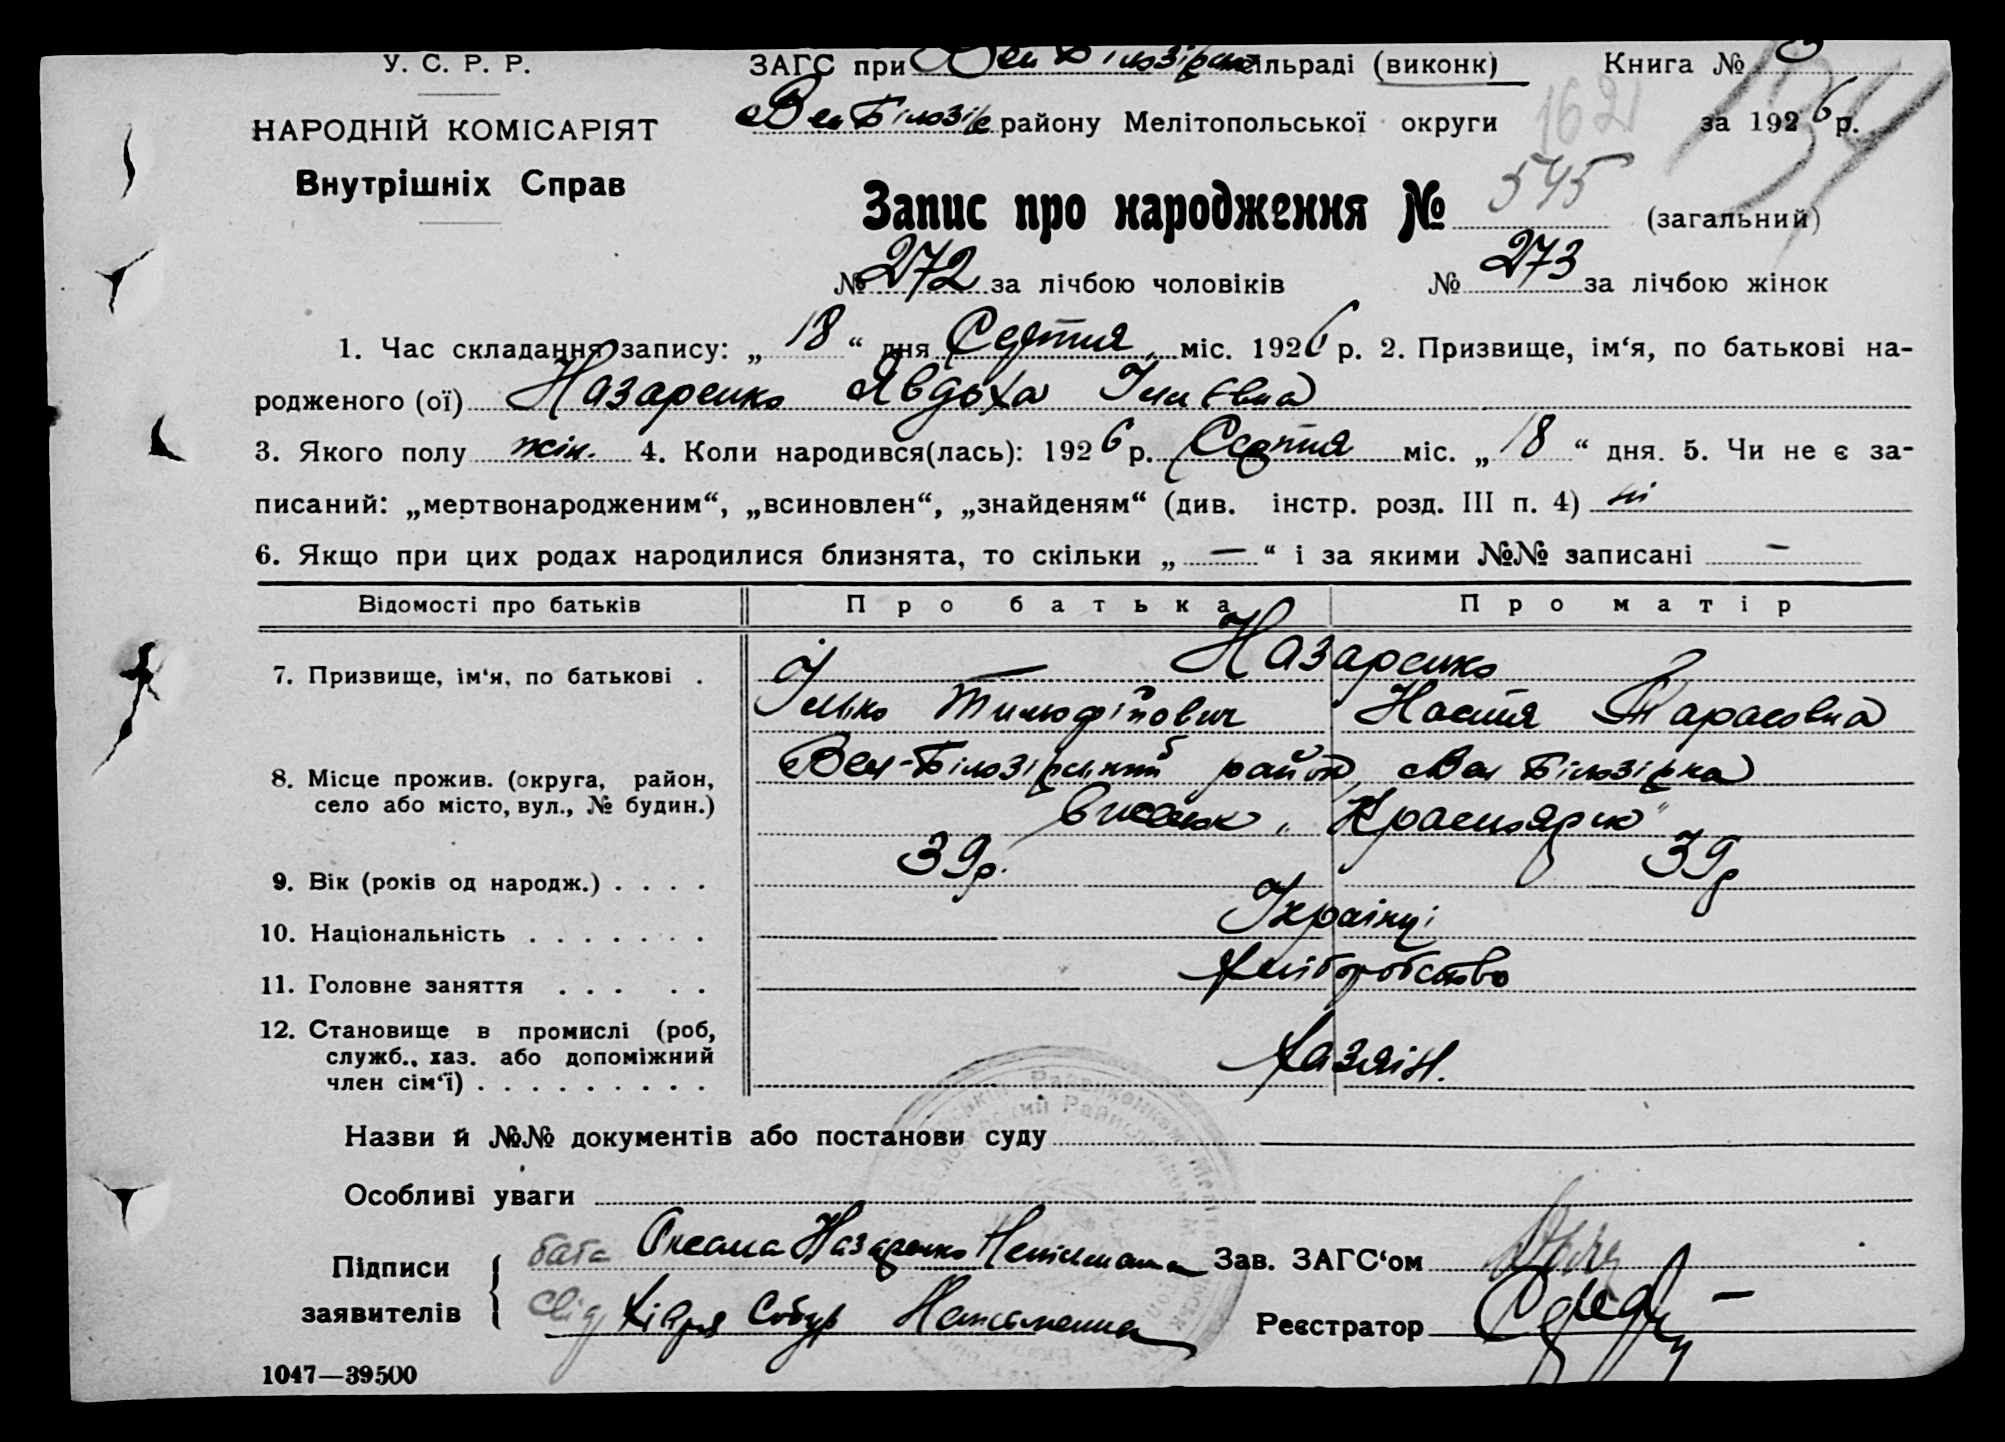 У. С. Р. Р.
НАРОДНІЙ КОМІСАРІЯТ
Внутрішніх Справ
ЗАГС при Вел Білозірск сільраді (виконк) Книга №
Вел Білозір району Мелітопольської округи за 1926 р.
162
Запис про народження № 545 (загальний)
№ 272 за лічбою чоловіків № 273 за лічбою жінок
1. Час складання запису: „ 18 “ дня Серпня міс. 1926 р. 2. Призвище, ім‘я, по батькові на-
родженого (ої) Назаренко Явдоха Ільківна
3. Якого полу жін. 4. Коли народився(лась): 1926 р. Серпня міс. „ 18 “ дня. 5. Чи не є за-
писаний: „мертвонародженим“, „всиновлен“, „знайденям“ (див. інстр. розд. III п. 4) ні
6. Якщо при цих родах народилися близнята, то скільки „ — “ і за якими №№ записані —
Відомості про батьків Про батька Про матір
7. Призвище, ім‘я, по батькові . Назаренко
Ілько Тимофійович Настя Тарасовна
8. Місце прожив. (округа, район, Вел-Білозірський район, Вел Білозірка
село або місто, вул., № будин.) виселок „Красноярск“
9. Вік (років од народж.) . . . . 39р. 39р
10. Національність . . . . . . . Українці
11. Головне заняття . . . . . Хліборобство
12. Становище в промислі (роб,
служб., хаз. або допоміжний
член сім‘ї) . . . . . . . . . Хазяїн.
Назви й №№ документів або постанови суду
Особливі уваги
Підписи
заявителів
баба Оксана Назаренко Неписьменна Зав. ЗАГС‘ом
Свід Хівря Собур Неписьменна Реєстратор
1047—39500